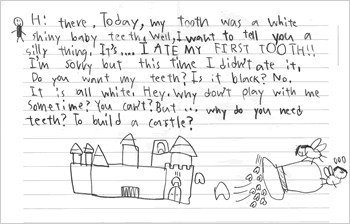 Hi there, Today, my tooth was a white
shiny baby teeth. Well, I want to tell you a
silly thing. It's.... I ATE MY FIRST TOOTH!!
I'm sorry but this time I didn't ate it.
Do you want my teeth? Is it black? No.
It is all white. Hey. Why don't play with me
sometime? You can't? But ... why do you need
teeth? To build a castle?